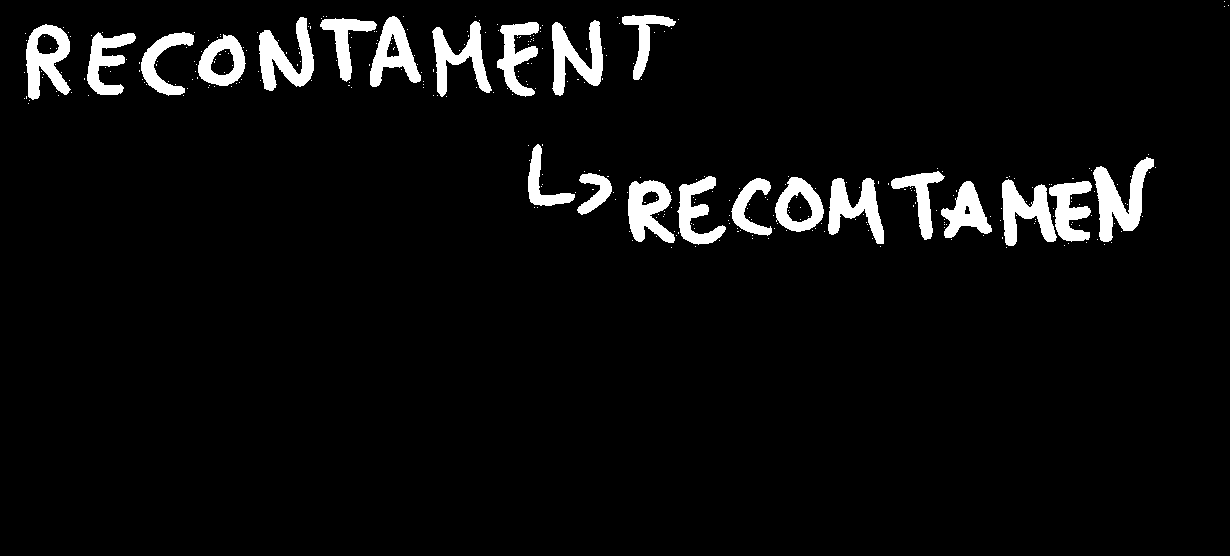 RECONTAMENT
↳ RECOMTAMEN